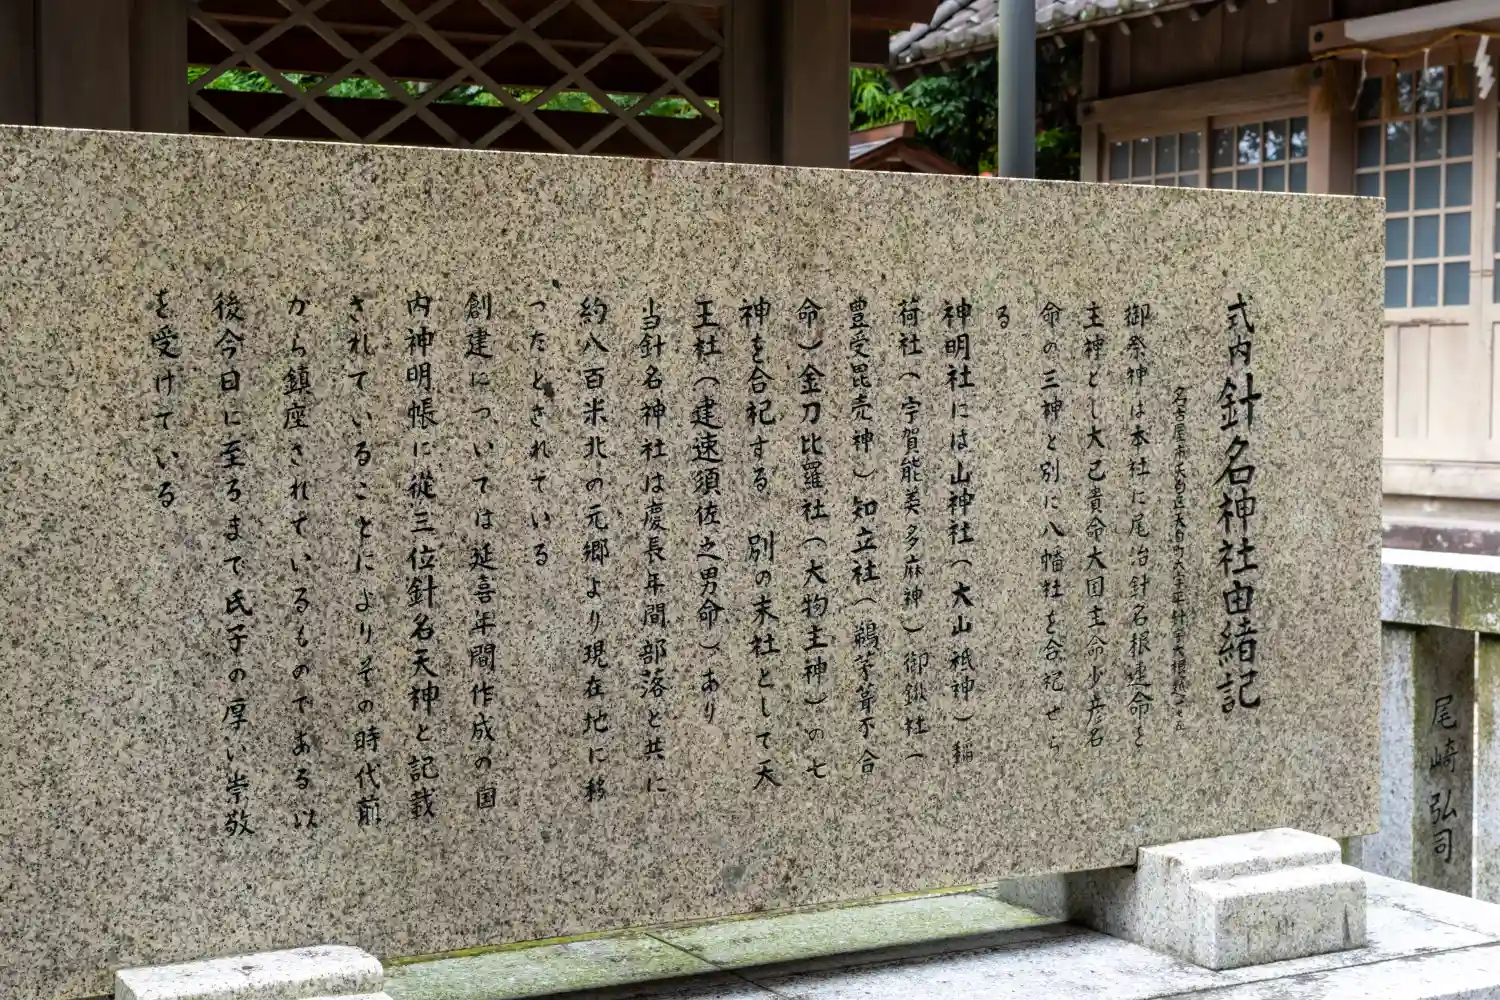 式内針名神社由緒記
名古屋市天白区天白町大字平針字大根越
御祭神は本社に尾治針名根連命を
主神とし大己貴命大国主命少彦名
命の三神と別に八幡社を合祀せら
る
神明社には山神社(大山祇神)稲
荷社(宇賀能美多麻神)御鍬社(
豊受毘売神)知立社(鵜茅葺不合
命)金刀比羅社(大物主神)の七
神を合祀する 別の末社として天
王社(建速須佐之男命)あり
当針名神社は慶長年間部落と共に
約八百米北の元郷より現在地に移
ったとされている
創建については延喜年間作成の国
内神明帳に從三位針名天神と記載
されていることによりその時代前
から鎮座されているものである 以
後今日に至るまで氏子の厚い崇敬
を受けている
尾崎弘司